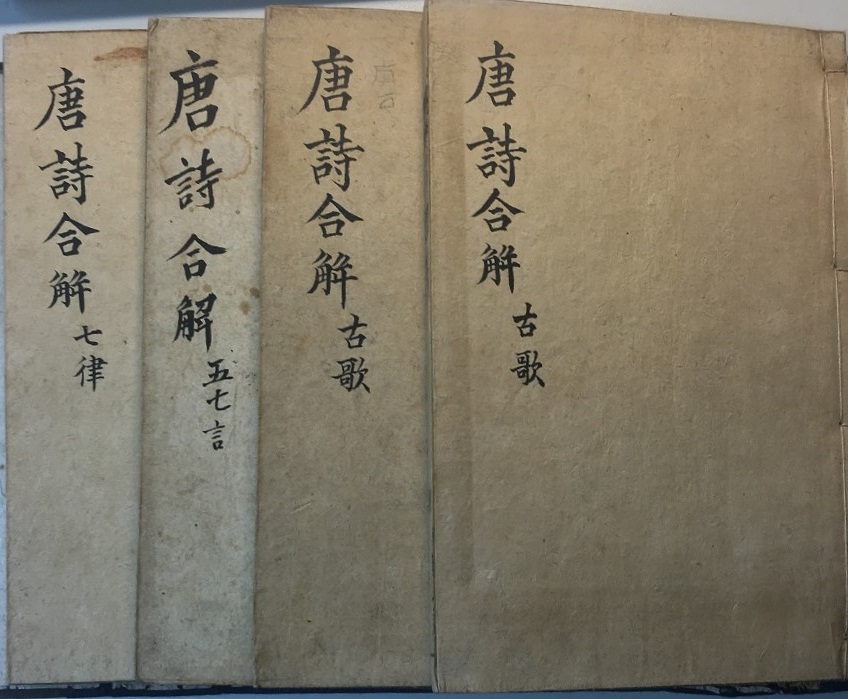 唐詩合觧
古歌
唐詩合觧
古歌
唐詩合解
五七言
唐詩合觧
七律